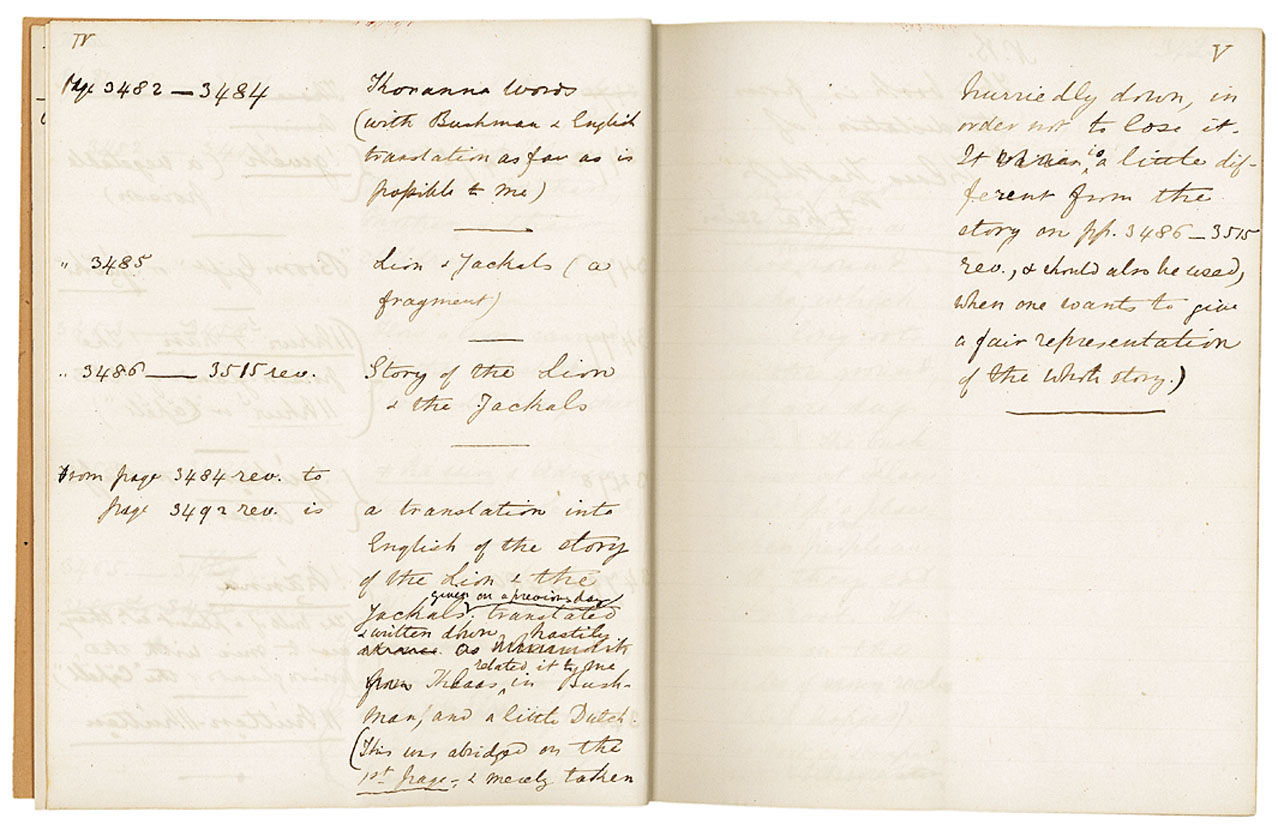 IV
Page 3482 — 3484
Thoranna words
(with Bushman & English
translation as far as is
possible to me)
" 3485
Lion & Jackals (a
fragment)
" 3486 — 3515 rev.
Story of the Lion
& the Jackals
From page 3484 rev. to
page 3492 rev. is
a translation into
English of the story
of the Lion & the
given on a previous day
Jackals, translated
& written down, hastily
as
related it to me
from in Bush-
man, and a little Dutch.
(This was abridged on the
1st page, & merely taken
V
hurriedly down, in
order not to lose it.
is
It a little dif-
ferent from the
story on pp. 3486 — 3515
rev., & should also be used,
when one wants to give
a fair representation
of the whole story.)